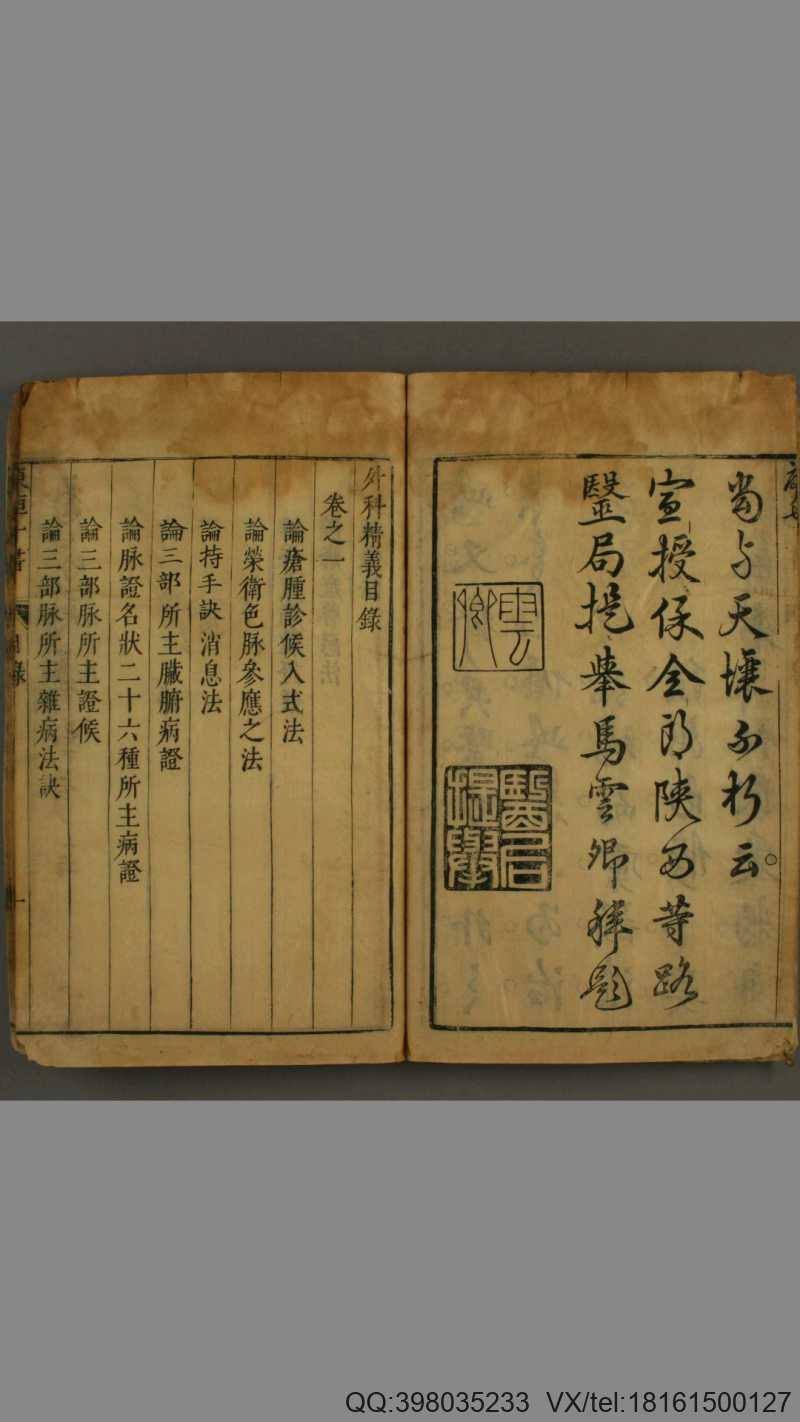 當與天壤不朽云
宣授保全郎陝西等路
毉局提舉馬雲卿拜題
雲卿
毉局提舉
外科精義目錄
卷之一
論瘡腫診候入式法
論榮衛色脉參應之法
論持手訣消息法
論三部所主臟腑病證
論脉證名狀二十六種所主病證
論三部脉所主證候
論三部脉所主雜病法訣
東垣十書
目錄
一
QQ:398035233 VX/tel:18161500127